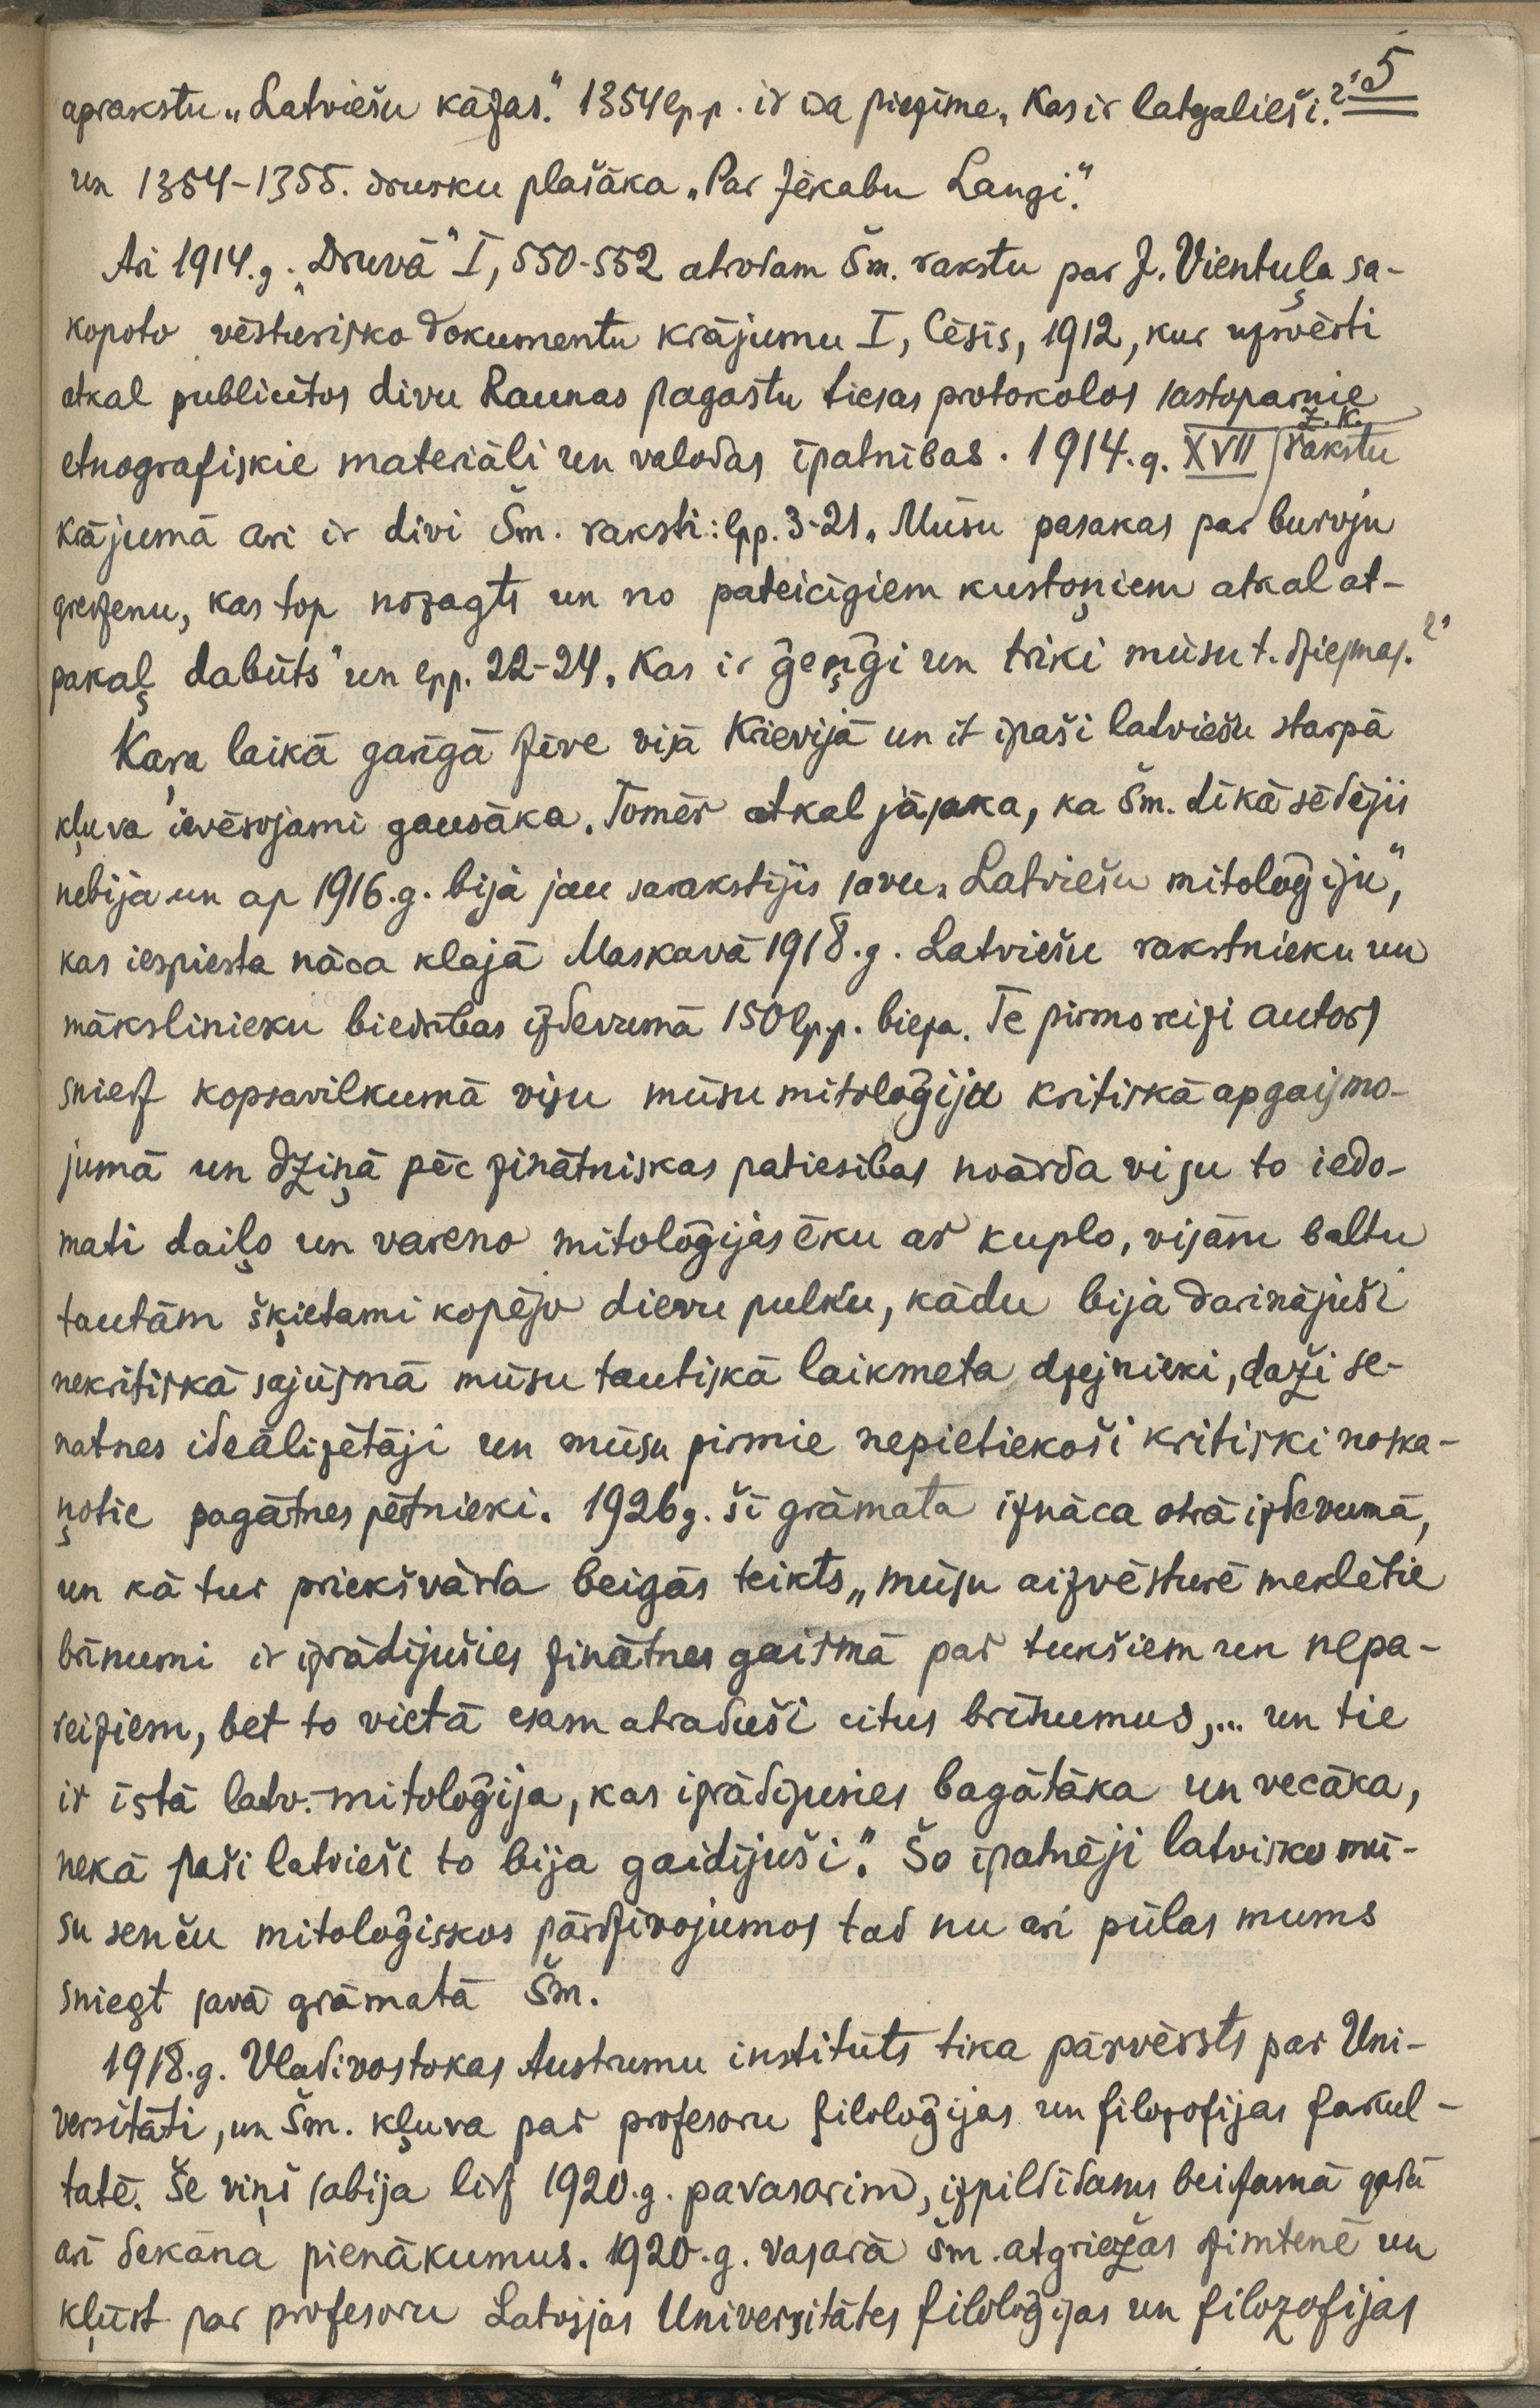 5
aprakstu „Latviešu kāzas." 1354 lpp. ir īsa piezīme „Kas ir latgalieši?"
un 1354-1355. drusku plašāka „Par Jēkabu Langi."
Ari 1914.g. „Druvā" I, 550-552 atrodam Šm. rakstu par J. Vientuļa sa-
kopoto vēsturisko dokumentu krājumu I, Cēsīs, 1912, kur uzsvērti
atkal publicētos divu Raunas pagastu tiesas protokolos sastopamie
etnografiskie materiāli un valodas īpatnības. 1914.g. XVII Z.K. rakstu
krājumā ari ir divi Šm. raksti: lpp. 3-21 „Mūsu pasakas par burvju
gredzenu, kas top nozagts un no pateicīgiem kustoņiem atkal at-
pakaļ dabūts" un lpp. 22-24 „Kas ir ģeņģi un triķi mūsu t. dziesmās?"
Kara laikā garīgā dzīve visā Krievijā un it īpaši latviešu starpā
kļuva ievērojami gausāka. Tomēr atkal jāsaka, ka Šm. dīkā sēdējis
nebija un ap 1916.g. bija jau sarakstījis savu „Latviešu mitoloģiju",
kas iespiesta nāca klajā Maskavā 1918.g. Latviešu rakstnieku un
mākslinieku biedrības izdevumā 150 lpp. bieza. Te pirmo reizi autors
sniedz kopsavilkumā visu mūsu mitoloģiju kritiskā apgaismo-
jumā un dziņā pēc zinātniskas patiesības noārda visu to iedo-
māti daiļo un vareno mitoloģijas ēku ar kuplo, visām baltu
tautām šķietami kopējo dievu pulku, kādu bija darinājuši
nekritiskā sajūsmā mūsu tautiskā laikmeta dzejnieki, daži se-
natnes ideālizētāji un mūsu pirmie nepietiekoši kritiski noska-
ņotie pagātnes pētnieki. 1926g. šī grāmata iznāca otrā izdevumā,
un kā tur priekšvārda beigās teikts „mūsu aizvēsturē meklētie
brīnumi ir izrādījušies zinātnes gaismā par tukšiem un nepa-
reiziem, bet to vietā esam atraduši citus brīnumus,... un tie
ir īstā latv. mitoloģija, kas izrādījusies bagātāka un vecāka,
nekā paši latvieši to bija gaidījuši." Šo īpatnēji latvisko mū-
su senču mitoloģiskos pārdzīvojumos tad nu ari pūlas mums
sniegt savā grāmatā Šm.
1918.g. Vladivostokas Austrumu institūts tika pārvērsts par Uni-
versitāti, un Šm. kļuva par profesoru filoloģijas un filozofijas fakul-
tatē. Še viņš sabija līdz 1920.g. pavasarim, izpildīdams beidzamā gadā
arī dekāna pienākumus. 1920.g. vasarā Šm. atgriežas dzimtenē un
kļūst par profesoru Latvijas Universitātes filoloģijas un filozofijas